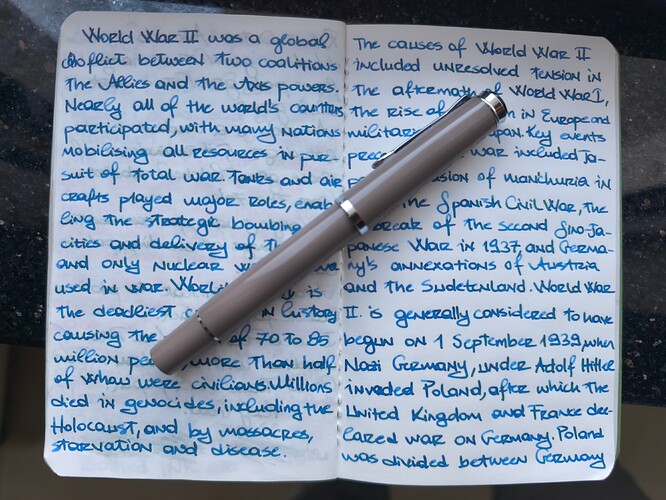 World War II was a global
conflict between two coalitions
the Allies and the Axis powers.
Nearly all of the world's countries
participated, with many nations
mobilising all resources in pur-
suit of total war. Tanks and air
crafts played major roles, enab
ling the strategic bombing
cities and delivery of the
and only nuclear
used in war. World is
the deadliest in history
causing the of 70 to 85
million more than half
of whom were civilians. Millions
died in genocides, including the
Holocaust, and by massacres,
starvation and disease.
The causes of World War II
included unresolved tension in
the aftermath of World War I,
the rise of in Europe and
Key events
war included Ja-
of manchuria in
the Spanish Civil War, the
of the second Sino-Ja-
panese War in 1937, and Germa-
ny's annexations of Austria
and the Sudetenland. World War
II. is generally considered to have
begun on 1 September 1939, when
Nazi Germany, under Adolf Hitler
invaded Poland, after which the
United Kingdom and France dec-
lared war on Germany. Poland
was divided between Germany